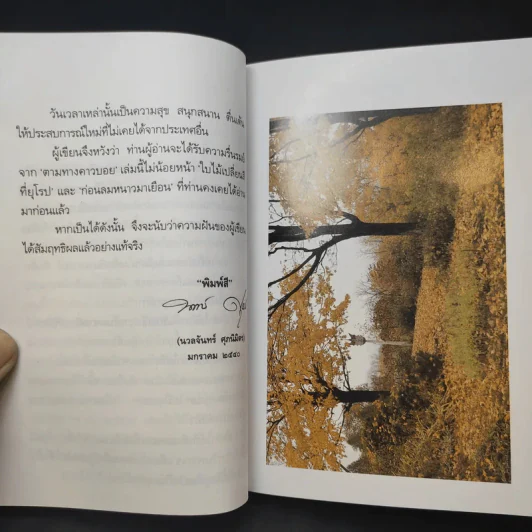 วันเวลาเหล่านั้นเป็นความสุข สนุกสนาน ตื่นเต้น
ให้ประสบการณ์ใหม่ที่ไม่เคยได้จากประเทศอื่น
ผู้เขียนจึงหวังว่า ท่านผู้อ่านจะได้รับความรื่นรมย์
จาก 'ตามทางคาวบอย' เล่มนี้ไม่น้อยหน้า 'ใบไม้เปลี่ยนสี
ที่ยุโรป' และ 'ก่อนลมหนาวมาเยือน' ที่ท่านคงเคยได้อ่าน
มาก่อนแล้ว
หากเป็นได้ดังนั้น จึงจะนับว่าความฝันของผู้เขียน
ได้สัมฤทธิผลแล้วอย่างแท้จริง
"พิมพ์สี"
(นวลจันทร์ ศุภนิมิตร)
มกราคม ๒๕๔๐